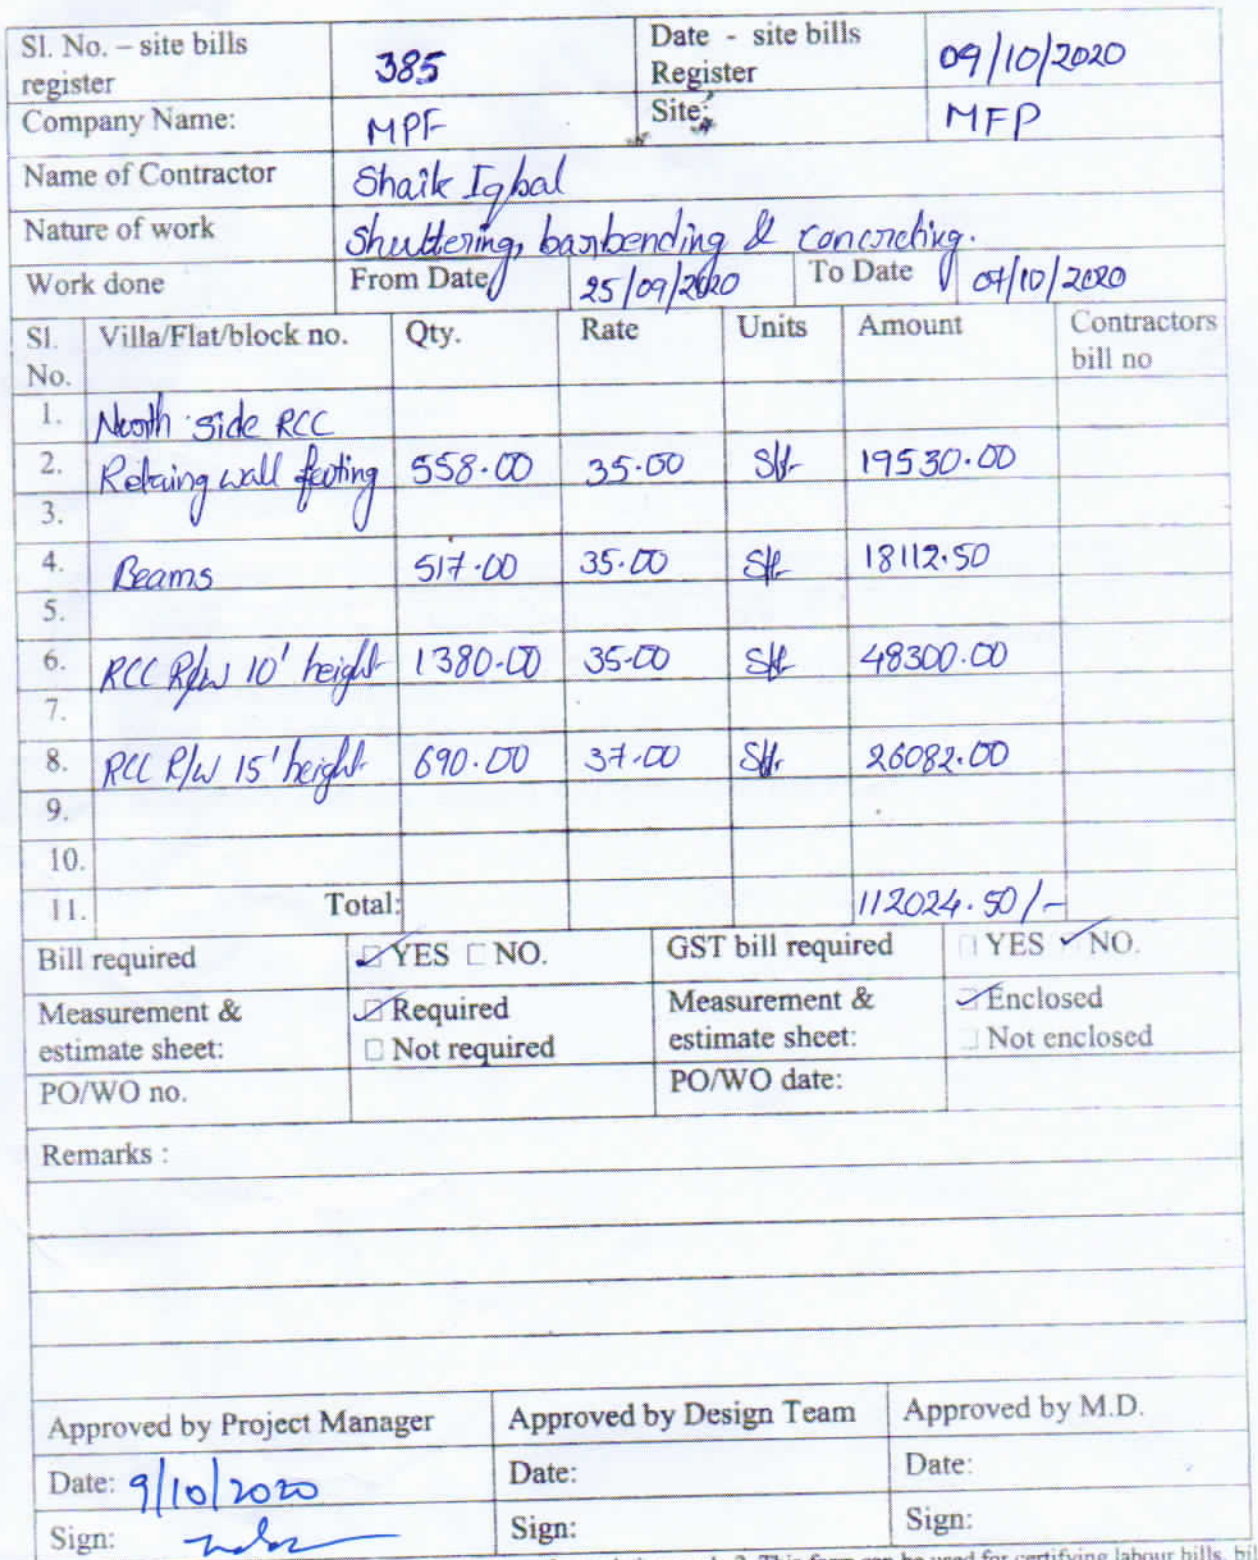 Sl. No. – site bills register 385 Date - site bills Register 09/10/2020
Company Name: MPF Site: MFP
Name of Contractor Shaik Iqbal
Nature of work Shuttering, barbending & concreting.
Work done From Date 25/09/2020 To Date 07/10/2020
Sl. No. Villa/Flat/block no. Qty. Rate Units Amount Contractors bill no
1. North side RCC
2. Retaing wall footing 558.00 35.00 Sft 19530.00
3.
4. Beams 517.00 35.00 Sft 18112.50
5.
6. RCC R/W 10' height 1380-00 35-00 Sft 48300.00
7.
8. RCC R/W 15' height 690.00 37.00 Sft 26082.00
9.
10.
11. Total: 112024.50/-
Bill required YES NO. GST bill required YES NO.
Measurement & estimate sheet: Required Measurement & estimate sheet: Enclosed
Not required Not enclosed
PO/WO no. PO/WO date:
Remarks :
Approved by Project Manager Approved by Design Team Approved by M.D.
Date: 9/10/2020 Date: Date:
Sign: Sign: Sign:
This form can be used for certifying labour bills,